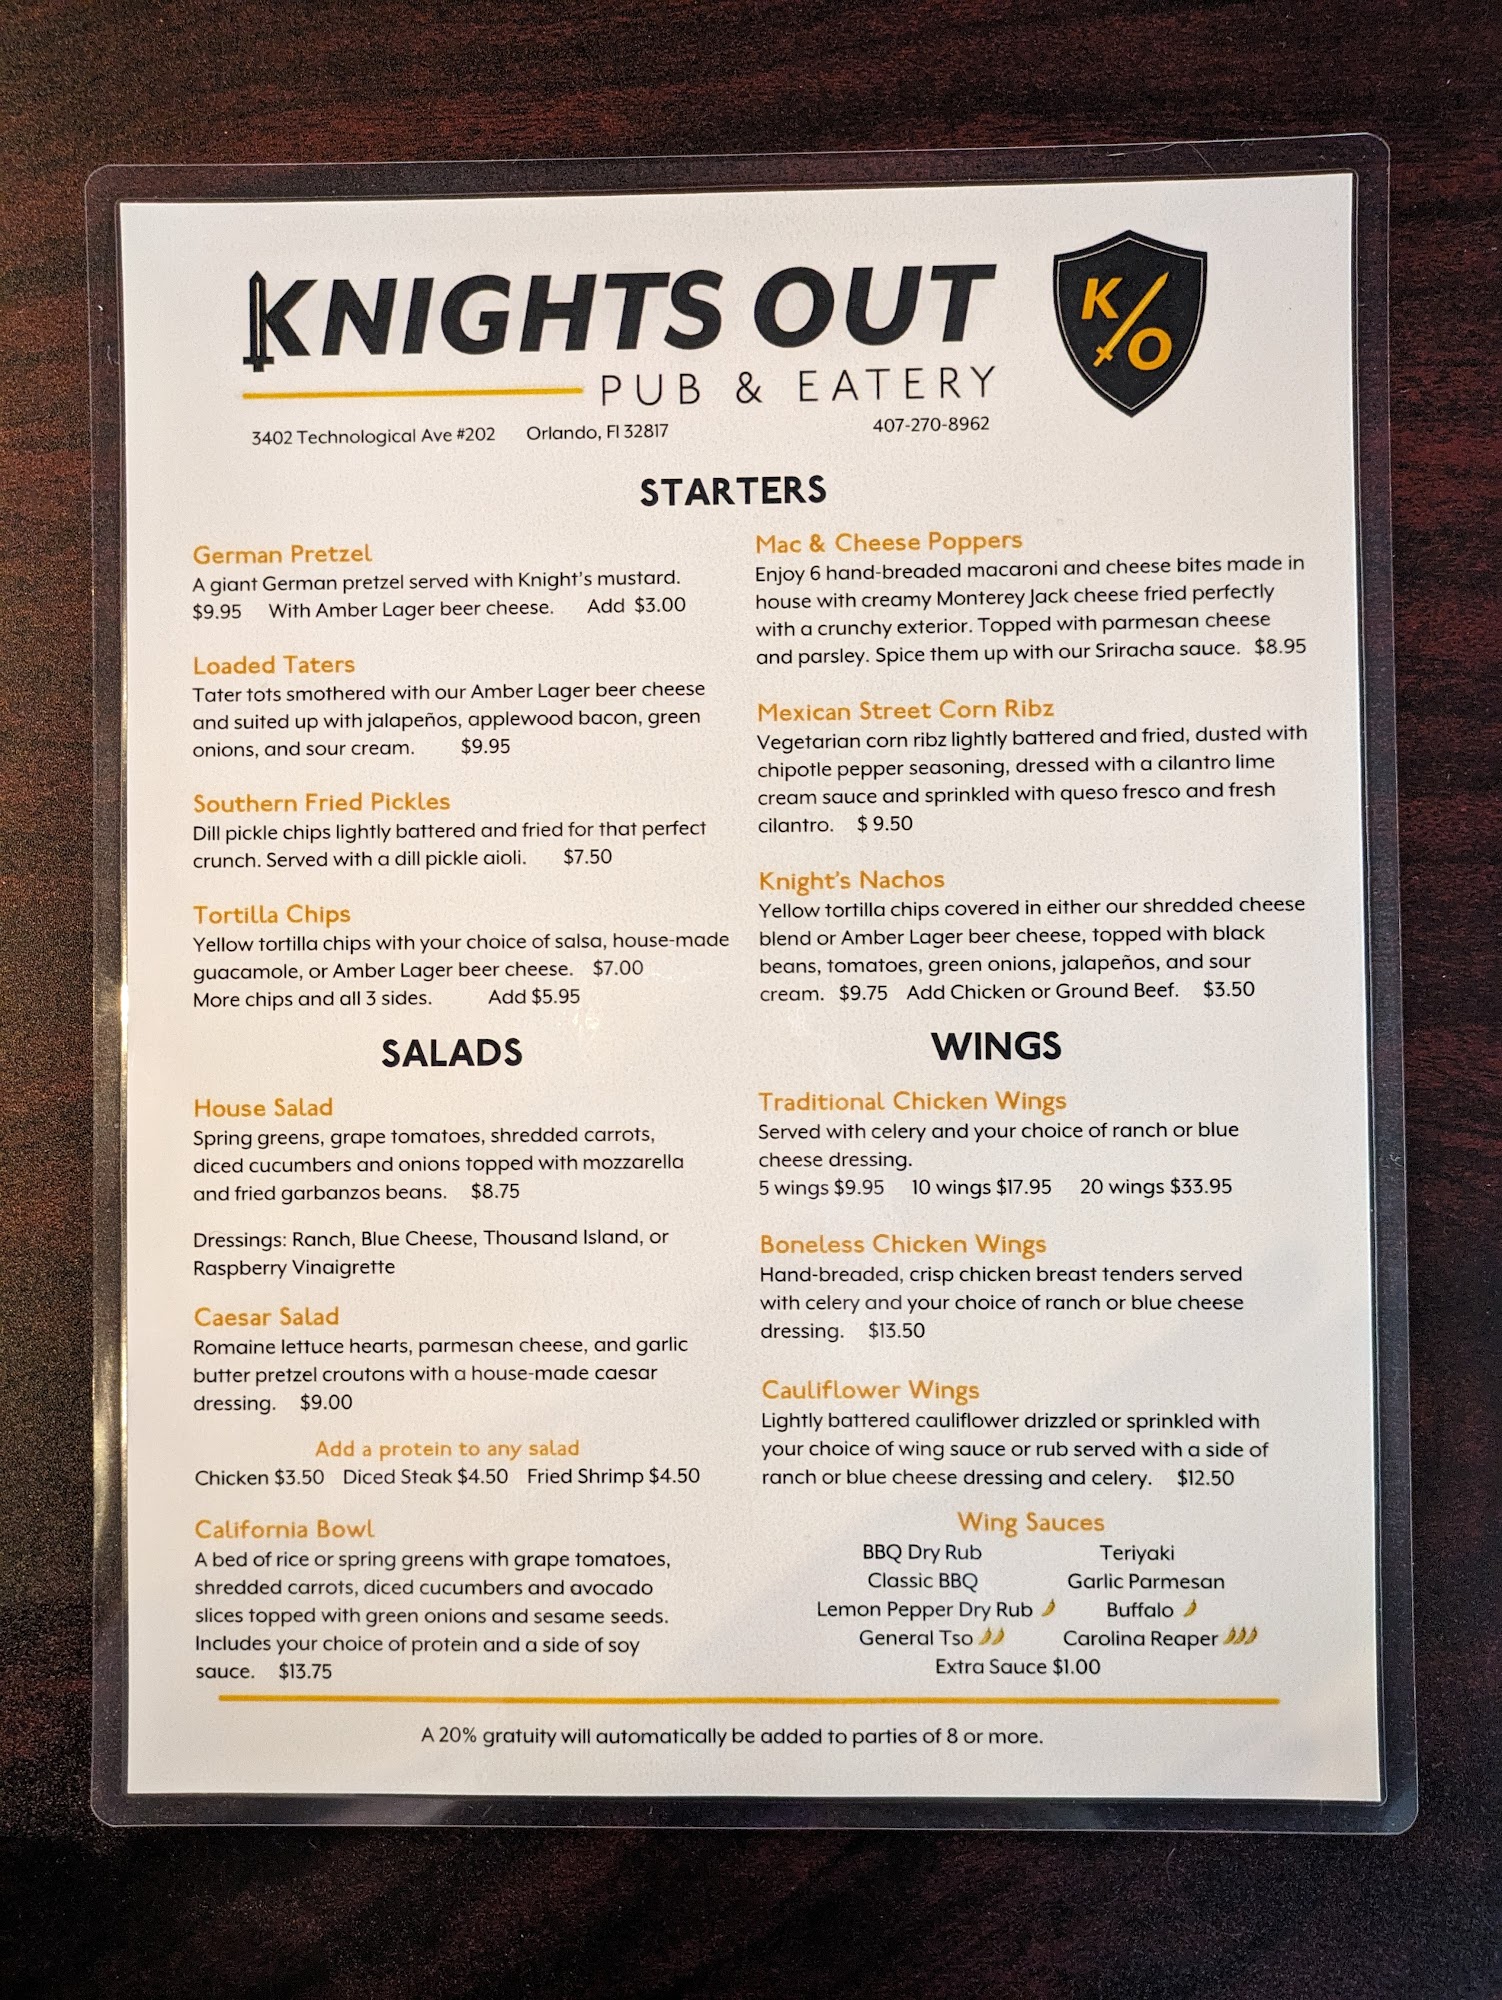 KNIGHTS OUT
PUB & EATERY
3402 Technological Ave #202 Orlando, Fl 32817 407-270-8962
K/O
STARTERS
German Pretzel
A giant German pretzel served with Knight's mustard.
$9.95 With Amber Lager beer cheese. Add $3.00
Loaded Taters
Tater tots smothered with our Amber Lager beer cheese
and suited up with jalapeños, applewood bacon, green
onions, and sour cream. $9.95
Southern Fried Pickles
Dill pickle chips lightly battered and fried for that perfect
crunch. Served with a dill pickle aioli. $7.50
Tortilla Chips
Yellow tortilla chips with your choice of salsa, house-made
guacamole, or Amber Lager beer cheese. $7.00
More chips and all 3 sides. Add $5.95
Mac & Cheese Poppers
Enjoy 6 hand-breaded macaroni and cheese bites made in
house with creamy Monterey Jack cheese fried perfectly
with a crunchy exterior. Topped with parmesan cheese
and parsley. Spice them up with our Sriracha sauce. $8.95
Mexican Street Corn Ribz
Vegetarian corn ribz lightly battered and fried, dusted with
chipotle pepper seasoning, dressed with a cilantro lime
cream sauce and sprinkled with queso fresco and fresh
cilantro. $ 9.50
Knight's Nachos
Yellow tortilla chips covered in either our shredded cheese
blend or Amber Lager beer cheese, topped with black
beans, tomatoes, green onions, jalapeños, and sour
cream. $9.75 Add Chicken or Ground Beef. $3.50
SALADS
House Salad
Spring greens, grape tomatoes, shredded carrots,
diced cucumbers and onions topped with mozzarella
and fried garbanzos beans. $8.75
Dressings: Ranch, Blue Cheese, Thousand Island, or
Raspberry Vinaigrette
Caesar Salad
Romaine lettuce hearts, parmesan cheese, and garlic
butter pretzel croutons with a house-made caesar
dressing. $9.00
Add a protein to any salad
Chicken $3.50 Diced Steak $4.50 Fried Shrimp $4.50
California Bowl
A bed of rice or spring greens with grape tomatoes,
shredded carrots, diced cucumbers and avocado
slices topped with green onions and sesame seeds.
Includes your choice of protein and a side of soy
sauce. $13.75
WINGS
Traditional Chicken Wings
Served with celery and your choice of ranch or blue
cheese dressing.
5 wings $9.95 10 wings $17.95 20 wings $33.95
Boneless Chicken Wings
Hand-breaded, crisp chicken breast tenders served
with celery and your choice of ranch or blue cheese
dressing. $13.50
Cauliflower Wings
Lightly battered cauliflower drizzled or sprinkled with
your choice of wing sauce or rub served with a side of
ranch or blue cheese dressing and celery. $12.50
Wing Sauces
BBQ Dry Rub Teriyaki
Classic BBQ Garlic Parmesan
Lemon Pepper Dry Rub Buffalo
General Tso Carolina Reaper
Extra Sauce $1.00
A 20% gratuity will automatically be added to parties of 8 or more.